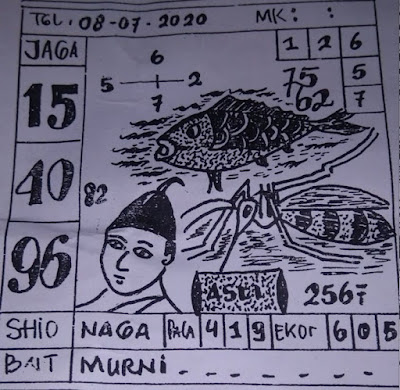 TGL. 08-07-2020 MK: :
JAGA 6 1 2 6
5 2 75 5
7 62 7
15
40 82
96
ASLI 2567
SHIO NAGA PALA 4 1 9 EKOR 6 0 5
BAIT MURNI. - - - - - -